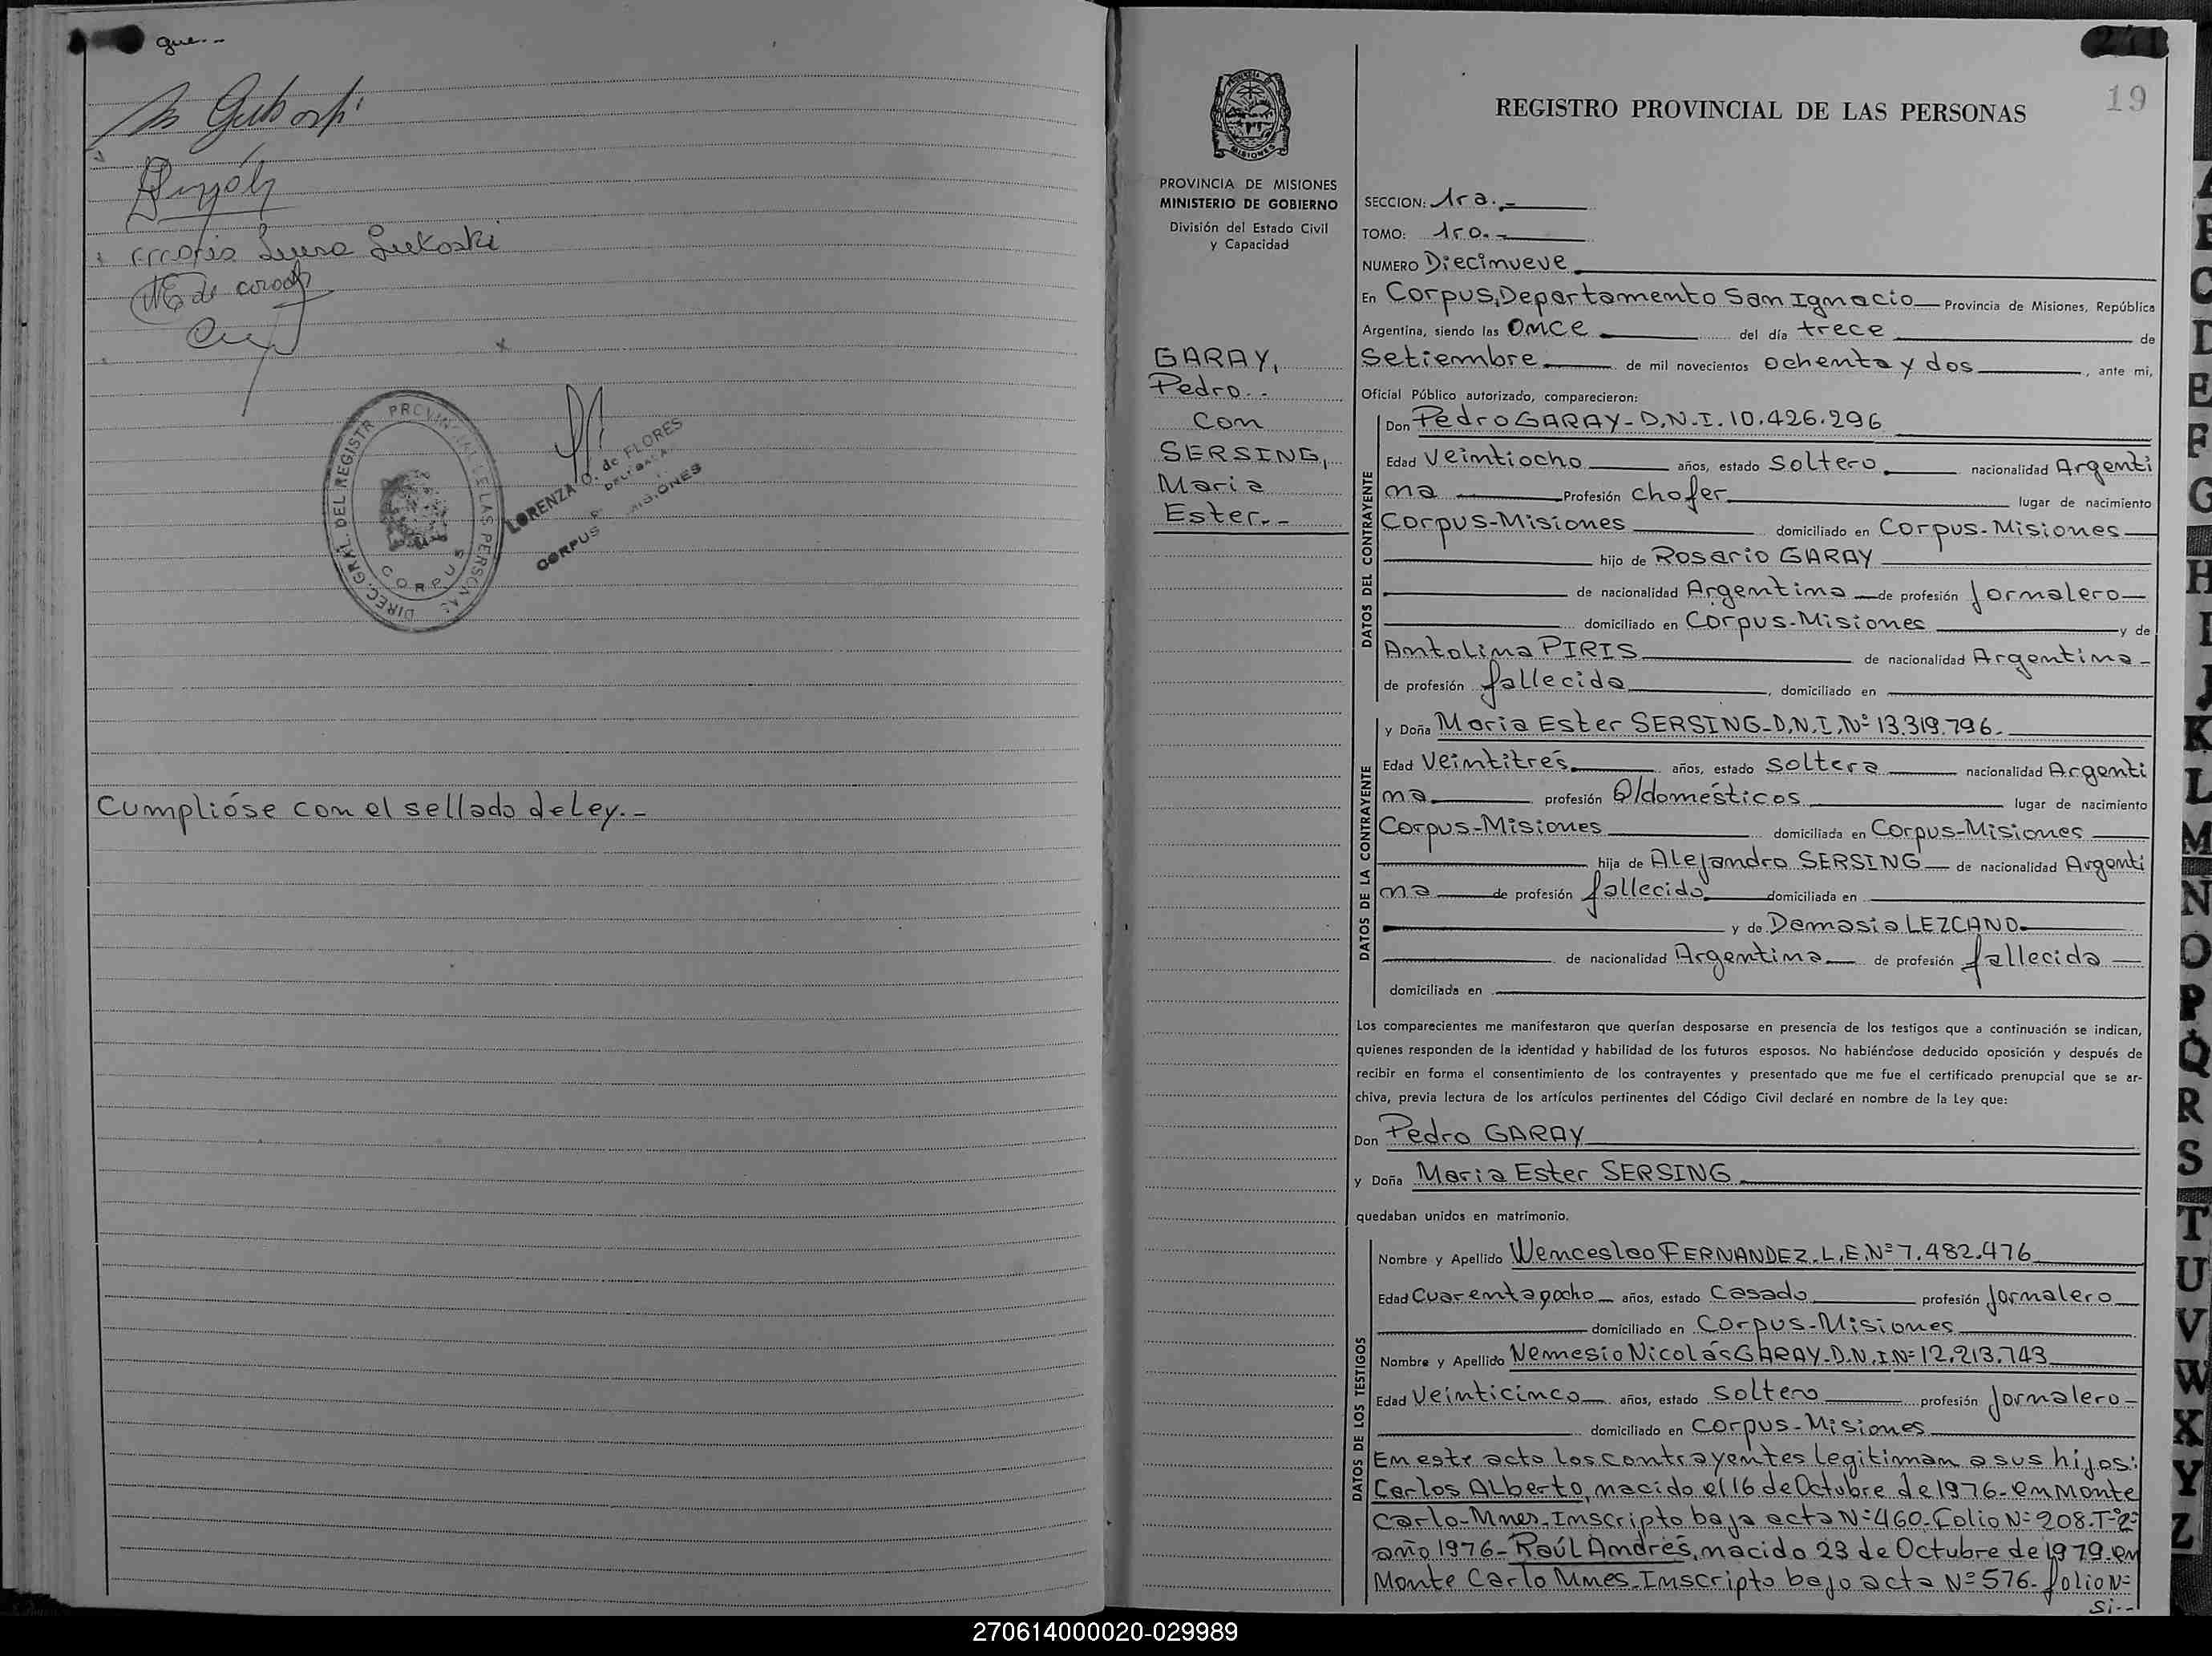 que.--
Maria Luisa
Cumplióse con el sellado de Ley.-
DIREC. GRAL. DEL REGISTR PROVINCIAL DE LAS PERSONAS
CORPUS
LORENZA O. de FLORES
CORPUS MISIONES
19
REGISTRO PROVINCIAL DE LAS PERSONAS
MISIONES
PROVINCIA DE MISIONES
MINISTERIO DE GOBIERNO
División del Estado Civil
y Capacidad
GARAY,
Pedro.-
Con
SERSING,
Maria
Ester.--
SECCION: 1ra.-
TOMO: 1ro.-
NUMERO Diecinueve
En Corpus, Departamento San Ignacio Provincia de Misiones, República
Argentina, siendo las Once del día trece de
Setiembre de mil novecientos ochenta y dos, ante mí,
Oficial Público autorizado, comparecieron:
DATOS DEL CONTRAYENTE
Don Pedro GARAY- D.N.I. 10.426.296
Edad Veintiocho años, estado Soltero nacionalidad Argenti
na Profesión chofer lugar de nacimiento
Corpus-Misiones domiciliado en Corpus-Misiones
hijo de Rosario GARAY
de nacionalidad Argentina de profesión Jornalero
domiciliado en Corpus-Misiones y de
Antolina PIRIS de nacionalidad Argentina-
de profesión fallecida, domiciliado en
DATOS DE LA CONTRAYENTE
y Doña Maria Ester SERSING-D.N.I.Nº 13.319.796.
Edad Veintitrés años, estado soltera nacionalidad Argenti
na profesión Q/domésticos lugar de nacimiento
Corpus-Misiones domiciliada en Corpus-Misiones
hija de Alejandro SERSING de nacionalidad Argenti
na de profesión fallecido domiciliada en
y de Damasia LEZCANO
de nacionalidad Argentina de profesión fallecida
domiciliada en
Los comparecientes me manifestaron que querían desposarse en presencia de los testigos que a continuación se indican,
quienes responden de la identidad y habilidad de los futuros esposos. No habiéndose deducido oposición y después de
recibir en forma el consentimiento de los contrayentes y presentado que me fue el certificado prenupcial que se ar-
chiva, previa lectura de los artículos pertinentes del Código Civil declaré en nombre de la Ley que:
Don Pedro GARAY
y Doña Maria Ester SERSING
quedaban unidos en matrimonio.
DATOS DE LOS TESTIGOS
Nombre y Apellido Wenceslao FERNANDEZ-L.E.Nº 7.482.476
Edad Cuarentayocho años, estado Casado profesión Jornalero
domiciliado en Corpus-Misiones
Nombre y Apellido Nemesio Nicolás GARAY-D.N.I Nº 12.213.743
Edad Veinticinco años, estado soltero profesión Jornalero-
domiciliado en Corpus-Misiones
En este acto los contrayentes legitiman a sus hijos:
Carlos Alberto, nacido el 16 de Octubre de 1976-en Monte
Carlo-Mnes-Inscripto bajo acta Nº 460-Folio Nº 208-Tº 2º
año 1976-Raúl Andrés, nacido 23 de Octubre de 1979-en
Monte Carlo Mnes-Inscripto bajo acta Nº 576-folio Nº
si--
C
D
E
F
G
H
I
J
K
L
M
N
O
P
Q
R
S
T
U
V
W
X
Y
Z
270614000020-029989